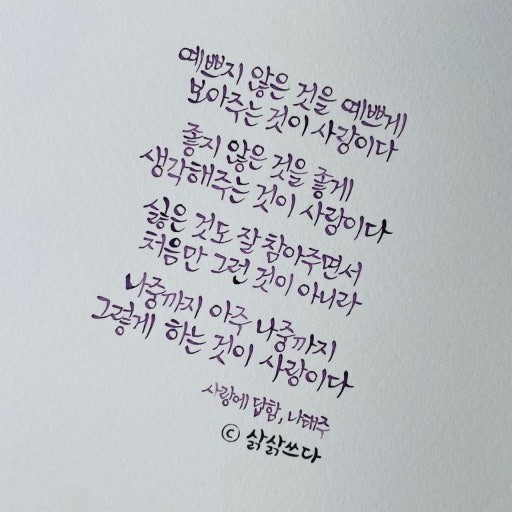 예쁘지 않은 것을 예쁘게
보아주는 것이 사랑이다
좋지 않은 것을 좋게
생각해주는 것이 사랑이다
싫은 것도 잘 참아주면서
처음만 그런 것이 아니라
나중까지 아주 나중까지
그렇게 하는 것이 사랑이다
사랑에 답함, 나태주
ⓒ 삵삵쓰다